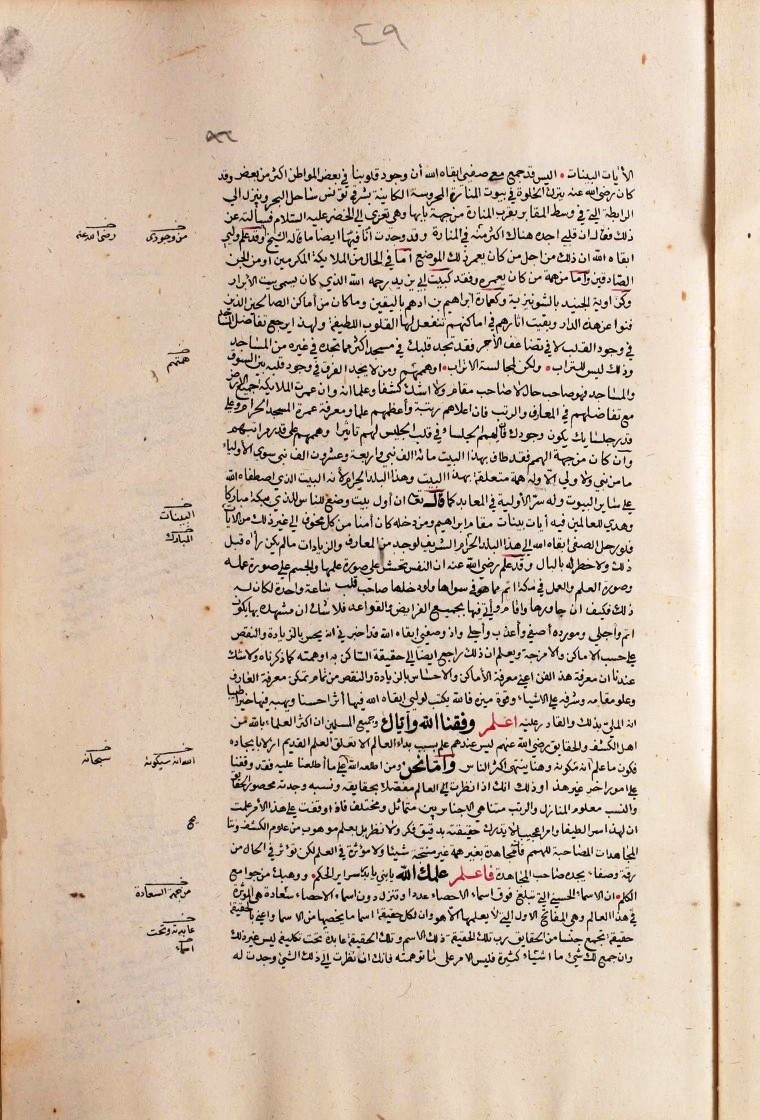 ٤٩
٥٢
الأيات البينات • اليس قد جمع مع صفي ابقاه الله أن وجود قلوبنا في بعض المواطن اكثر من بعض وقد
كان رضي الله عنه يترك الخلوة في بيوت المنارة المحروسة الكاينة بشرقي تونس بساحل البحر وينزل الى
الرابطة التي في وسط المقابر بقرب المنارة من جهة بابها وهي تعزى الى الخضر عليه السلام فسألته عن
ذلك فقال ان قلبي اجده هناك اكثر منه في المنارة وقد وجدت انا فيها ايضا ما قاله الشيخ وقد علم وليي
ابقاه الله ان ذلك من اجل من كان يعمر ذلك الموضع أما في الحال من الملايكة المكرمين او من الجن
الصادقين وأما من همة من كان يعمره وفقد كبيت ابي يزيد رحمه الله الذي كان يسمى بيت الأبرار
وكزاوية الجنيد بالشونيزية وكمغارة ابراهيم بن ادهم باليقين وما كان من أماكن الصالحين الذين
فنوا عن هذه الدار وبقيت اثارهم في اماكنهم تنفعل لها القلوب اللطيفة ولهذا يرجع تفاضل المساجد
في وجود القلب لا في تضاعف الأجر فقد تجد قلبك في مسجد اكثر مما تجده في غيره من المساجد
وذلك ليس للتراب • ولكن لمجالسة الاتراب • اوهممهم ومن لا يجد الفرق في وجود قلبه بين السوق
والمساجد فهو صاحب حال لا صاحب مقام ولا اشك كشفا وعلما انه وان عمرت الملايكة جميع الأرض
مع تفاضلهم في المعارف والرتب فان اعلاهم رتبة وأعظمهم علما ومعرفة عمرة المسجد الحرام وعلى
قدر جلسايك يكون وجودك فان لهمم الجلساء في قلب الجليس لهم تأثيرا وهممهم على قدر مراتبهم
وان كان من جهة الهمم فقد طاف بهذا البيت مائة الف نبي واربعة وعشرون الف نبي سوى الأولياء
ما من نبي ولا ولي الا وله همة متعلقة بهذا البيت وهذا البلد الحرام لأنه البيت الذي اصطفاه الله
على ساير البيوت وله سر الأولية في المعابد كما قال تعالى ان أول بيت وضع للناس للذي ببكة مباركا
وهدى للعالمين فيه أيات بينات مقام ابراهيم ومن دخله كان أمنا من كل مخوف الى غير ذلك من الآيات
فلو رحل الصفي ابقاه الله الى هذا البلد الحرام الشريف لوجد من المعارف والزيادات مالم يكن رأه قبل
ذلك ولا خطر له بالبال وقد علم رضي الله عنه ان النفس تحشر على صورة علمها والجسم على صورة عمله
وصورة العلم والعمل في مكة اتم مما هو في سواها ولو دخلها صاحب قلب ساعة واحدة لكان له
ذلك فكيف ان جاورها واقام وأتى فيها بجميع الفرايض والقواعد فلا شك ان مشهده بها يكون
اتم واجلى ومورده أصفى وأعذب وأحلى واذ وصفيي ابقاه الله قد اخبرني انه يحس بالزيادة والنقص
على حسب الاماكن والامزجة ويعلم ان ذلك راجع ايضا الى حقيقة الساكن به اوهمته كما ذكرناه ولا شك
عندنا ان معرفة هذا الفن اعني معرفة الأماكن والاحساس بالزيادة والنقص من تمام تمكن معرفة العارف
وعلو مقامه وشرفه على الأشياء وقوة ميزه فالله يكتب لوليي ابقاه الله فيها أثرا حسنا ويهبه فيها خيرا طيبا
انه الملي بذلك والقادر عليه اعلم وفقنا الله واياك وجميع المسلمين ان اكثر العلماء بالله من
اهل الكشف والحقايق رضي الله عنهم ليس عندهم علم بسبب بداء العالم الا تعلق العلم القديم ازلا بايجاده
فكون ما علم انه مكونه وهنا ينتهى اكثر الناس وأما نحن ومن اطلعه الله على ما أطلعنا عليه فقد وقفنا
على امور اخر غير هذا وذلك انك اذا نظرت الى العالم مفصلا بحقايقه ونسبه وجدته محصور الحقايق
والنسب معلوم المنازل والرتب متناهي الاجناس بين متماثل ومختلف فاذا وقفت على هذا الأمر علمت
ان لهذا اسرا لطيفا وامرا عجيبا لا تدرك حقيقته بدقيق فكر ولا نظر بل بعلم موهوب من علوم الكشف ونتايج
المجاهدات المصاحبة للهمم فان مجاهدة بغير همة غير منتجة شيئا ولا مؤثرة في العلم لكن تؤثر في الحال من
رقة وصفاء يجده صاحب المجاهدة فاعلم علمك الله يا بني يا بك سراير الحكم • ووهبك من جوامع
الكلم • ان الاسماء الحسنى التي تبلغ فوق اسماء الاحصاء عددا وتنزل دون اسماء الاحصاء سعادة هي المؤثرة
في هذا العالم وهي المفاتح الاول التي لا يعلمها الا هو وان لكل حقيقة اسما ما يخصها من الاسماء واعني بالحقيقة
حقيقة تجمع جنسا من الحقايق رب تلك الحقيقة ذلك الاسم وتلك الحقيقة عابدة تحت تكليفه ليس غير ذلك
وان جمع لك شيء ما اشياء كثيرة فليس الامر على ما توهمته فانك ان نظرت الى ذلك الشيئ وجدت له
من وجودى
رضي الله عنه
همتهم
البينات
المبارك
الله انه سيكونه
سبحانه
صح
من جهة السعادة
عابدته وتحت
اسماء